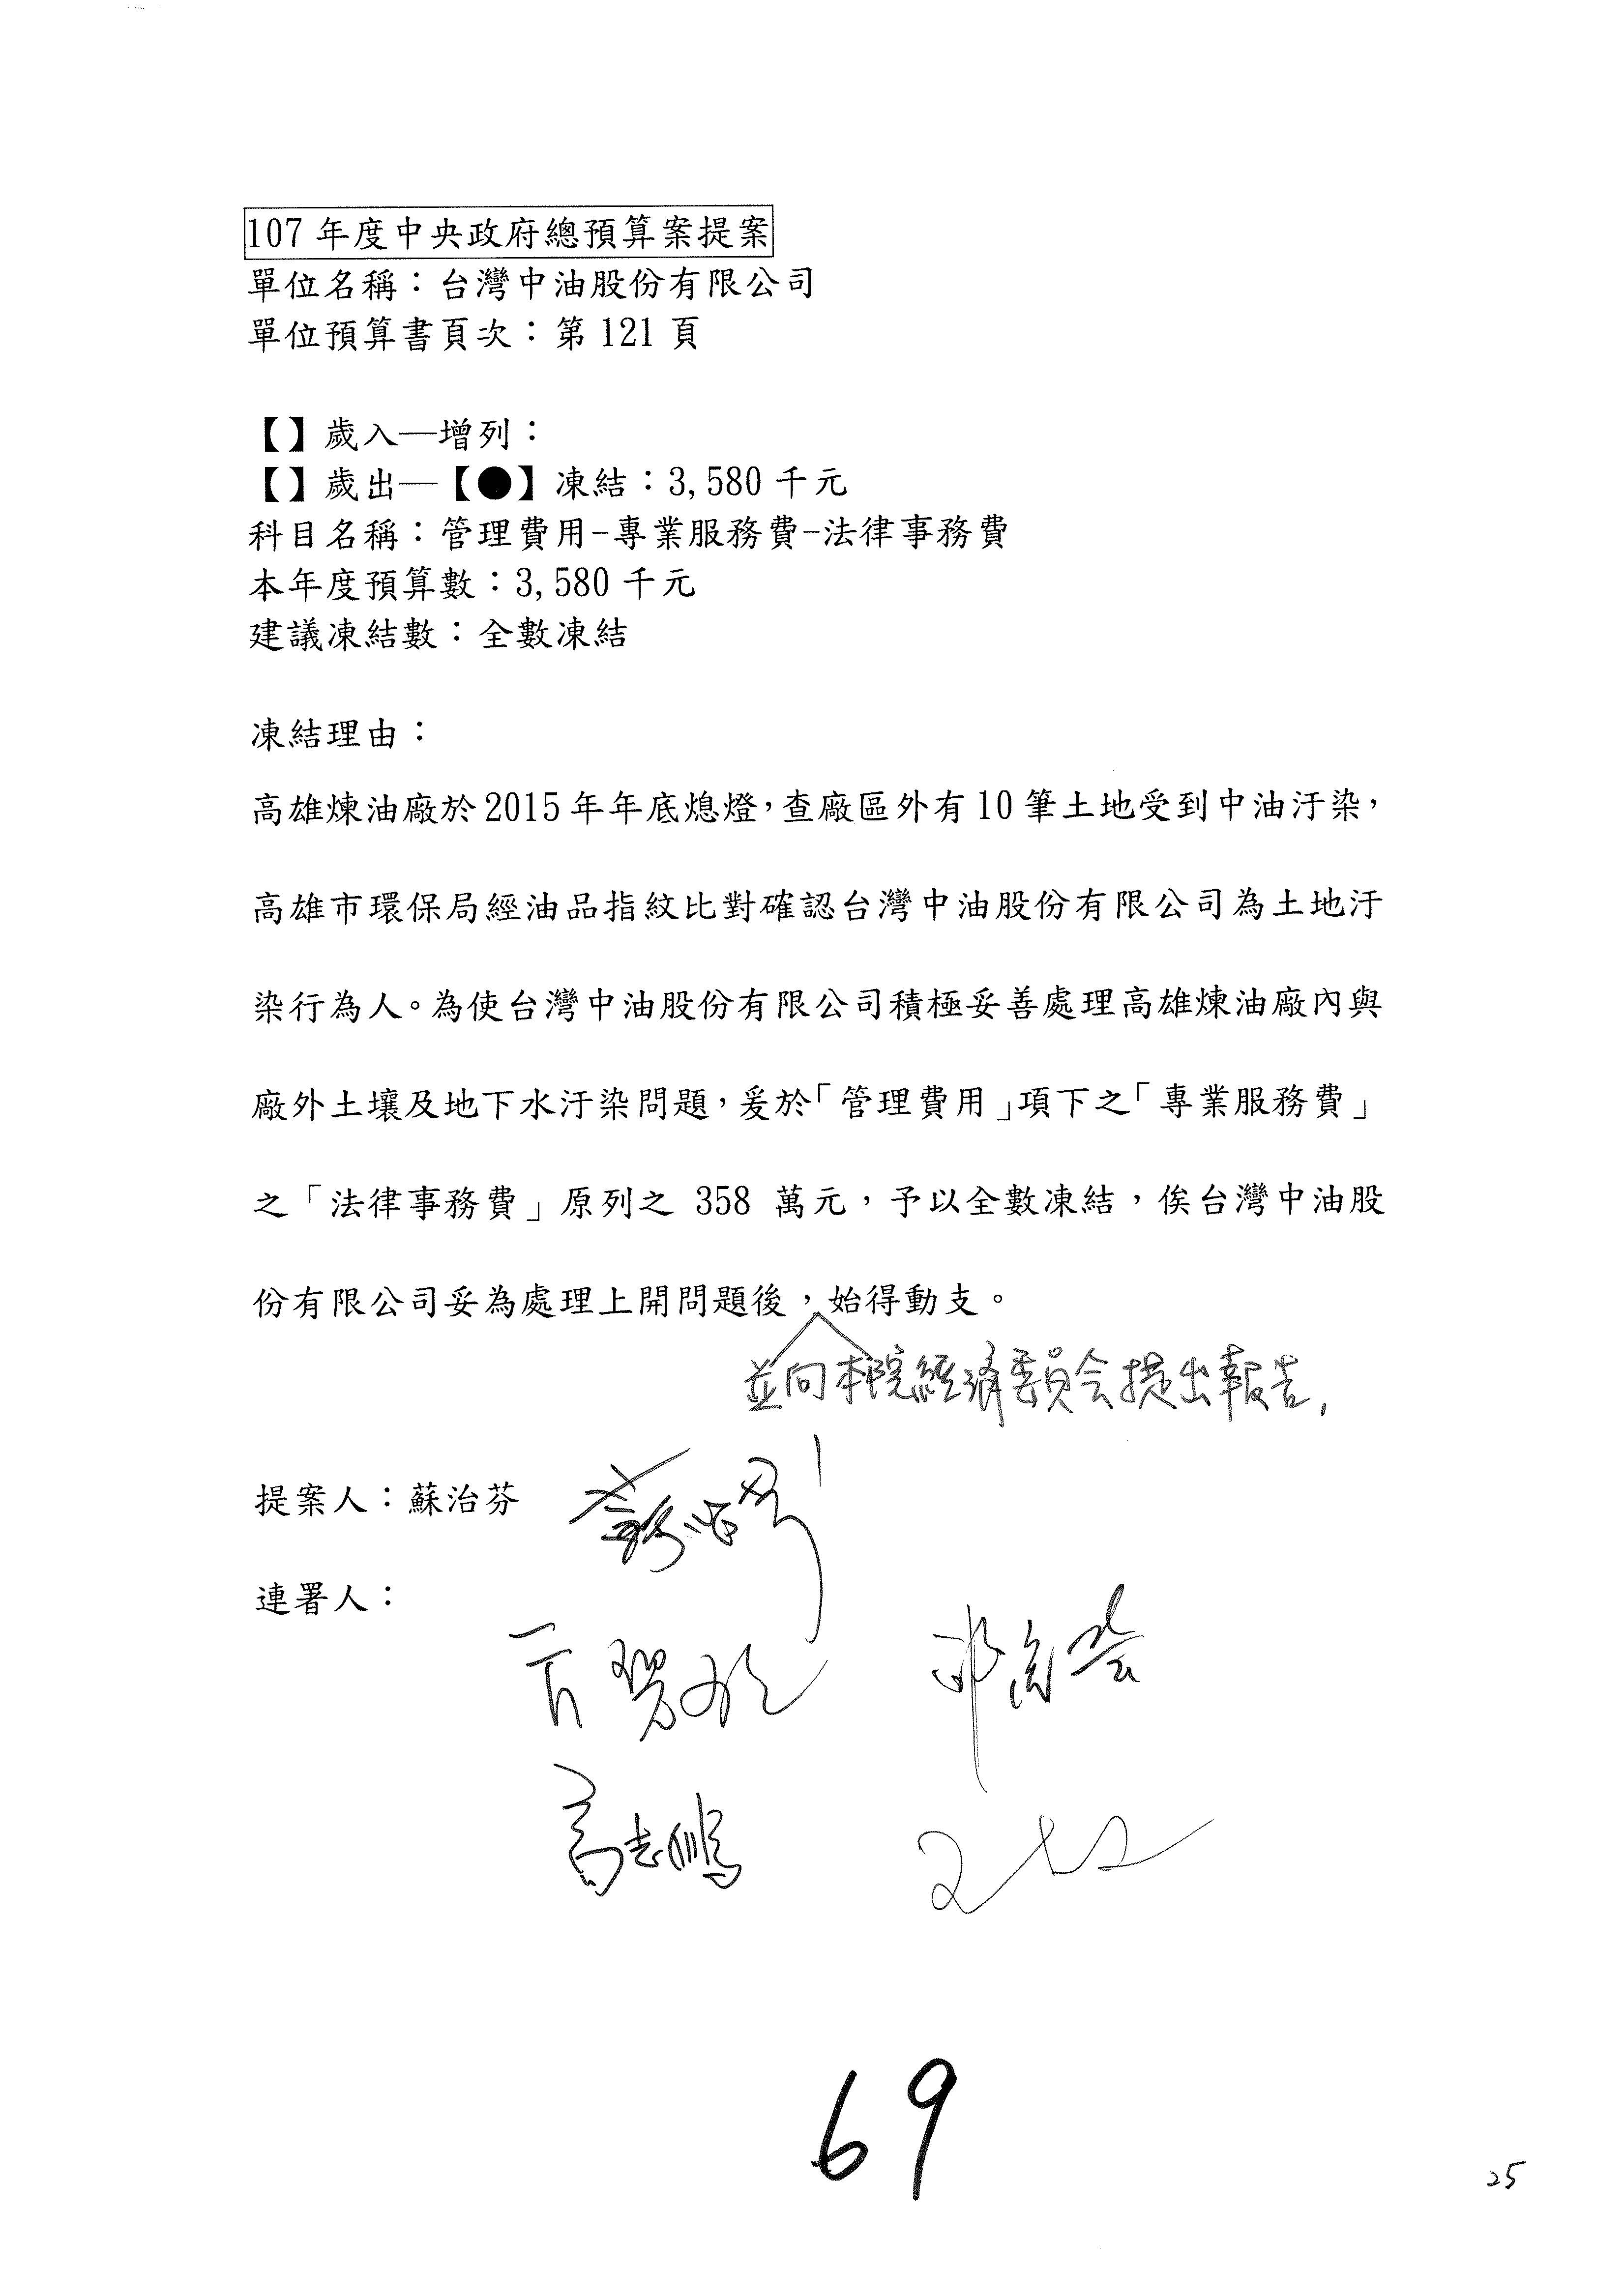 107 年度中央政府總預算案提案
單位名稱：台灣中油股份有限公司
單位預算書頁次：第 121 頁
【】歲入—增列：
【】歲出—【●】凍結：3,580 千元
科目名稱：管理費用-專業服務費-法律事務費
本年度預算數：3,580 千元
建議凍結數：全數凍結
凍結理由：
高雄煉油廠於 2015 年年底熄燈，查廠區外有 10 筆土地受到中油汙染，
高雄市環保局經油品指紋比對確認台灣中油股份有限公司為土地汙
染行為人。為使台灣中油股份有限公司積極妥善處理高雄煉油廠內與
廠外土壤及地下水汙染問題，爰於「管理費用」項下之「專業服務費」
之「法律事務費」原列之 358 萬元，予以全數凍結，俟台灣中油股
份有限公司妥為處理上開問題後，始得動支。
並向本院經濟委員會提出報告，
提案人：蘇治芬 蘇治芬
連署人：
高志鵬
69
25